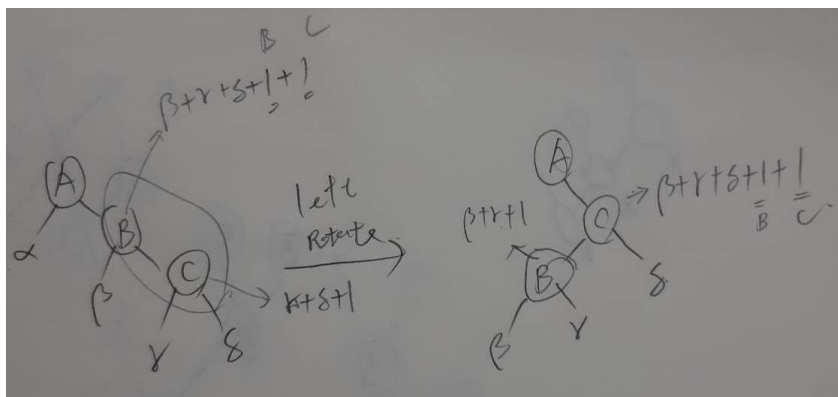 B C
β+γ+δ+1+1
A
B
C
α
β
γ
δ
γ+δ+1
left
Rotate
A
C
B
β+γ+1
β+γ+δ+1+1
B C
β
γ
δ